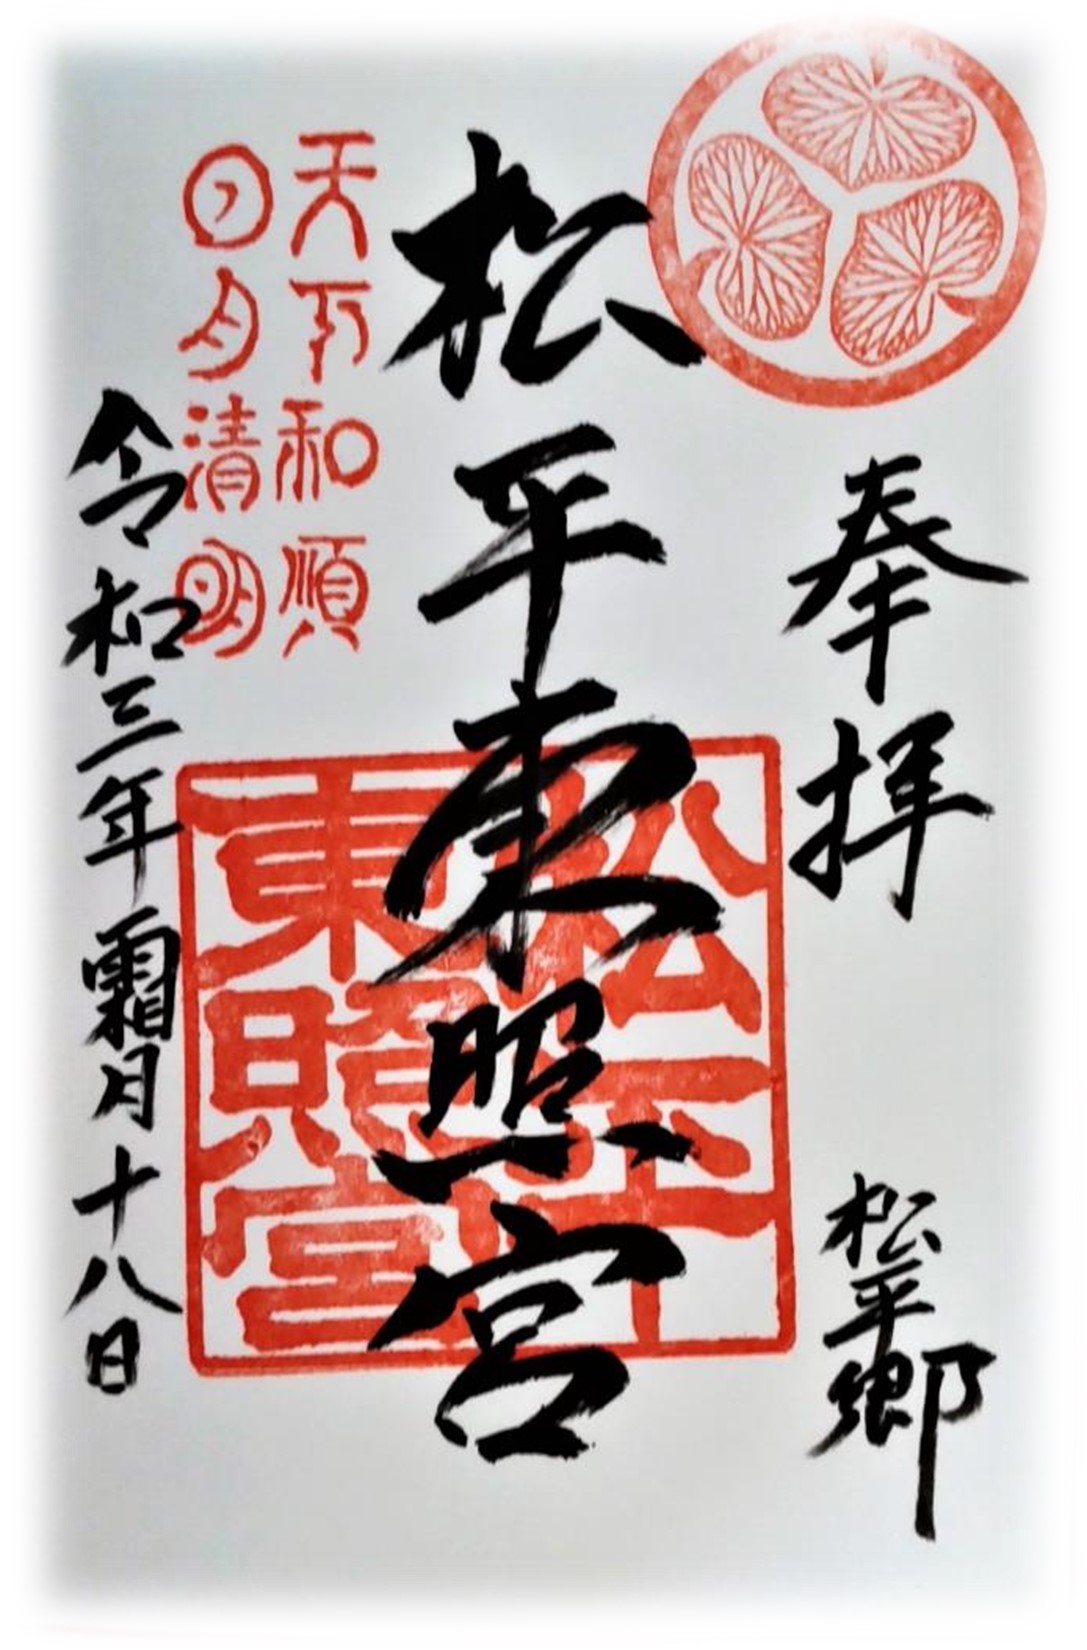 奉拝
松平郷
松平東照宮
松平
東照宮
天下和順
日月清明
令和三年霜月十八日